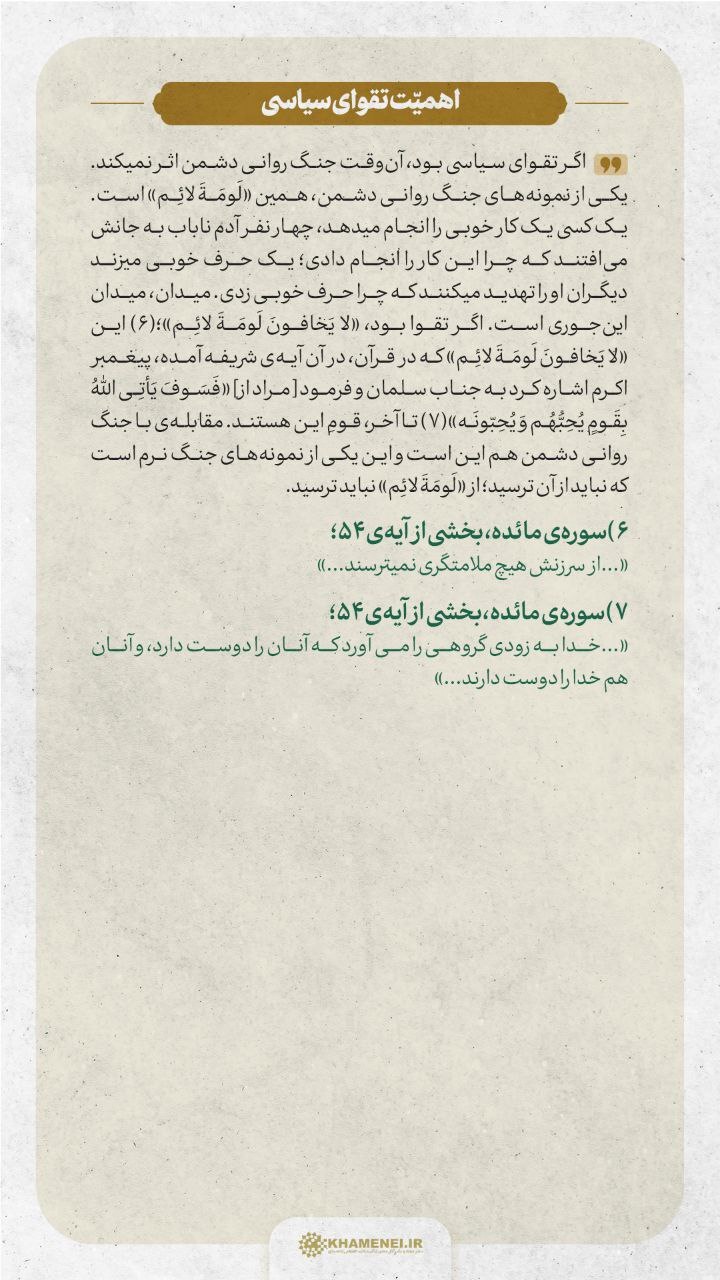 اهمیّت تقوای سیاسی
اگر تقوای سیاسی بود، آن‌وقت جنگ روانی دشمن اثر نمیکند.
یکی از نمونه‌های جنگ روانی دشمن، همین «لَومَةَ لائِم» است.
یک کسی یک کار خوبی را انجام میدهد، چهار نفر آدم ناباب به جانش
می‌افتند که چرا این کار را انجام دادی؛ یک حرف خوبی میزند
دیگران او را تهدید میکنند که چرا حرف خوبی زدی. میدان، میدان
این‌جوری است. اگر تقوا بود، «لا یَخافونَ لَومَةَ لائِم»؛(۶) این
«لا یَخافونَ لَومَةَ لائِم» که در قرآن، در آن آیه‌ی شریفه آمده، پیغمبر
اکرم اشاره کرد به جناب سلمان و فرمود [مراد از] «فَسَوفَ یَأتِی اللهُ
بِقَومٍ یُحِبُّهُم وَ یُحِبّونَه»(۷) تا آخر، قومِ این هستند. مقابله‌ی با جنگ
روانی دشمن هم این است و این یکی از نمونه‌های جنگ نرم است
که نباید از آن ترسید؛ از «لَومَةَ لائِم» نباید ترسید.
۶) سوره‌ی مائده، بخشی از آیه‌ی ۵۴؛
«...از سرزنش هیچ ملامتگری نمیترسند...»
۷) سوره‌ی مائده، بخشی از آیه‌ی ۵۴؛
«...خدا به زودی گروهی را می آورد که آنان را دوست دارد، و آنان
هم خدا را دوست دارند...»
KHAMENEI.IR